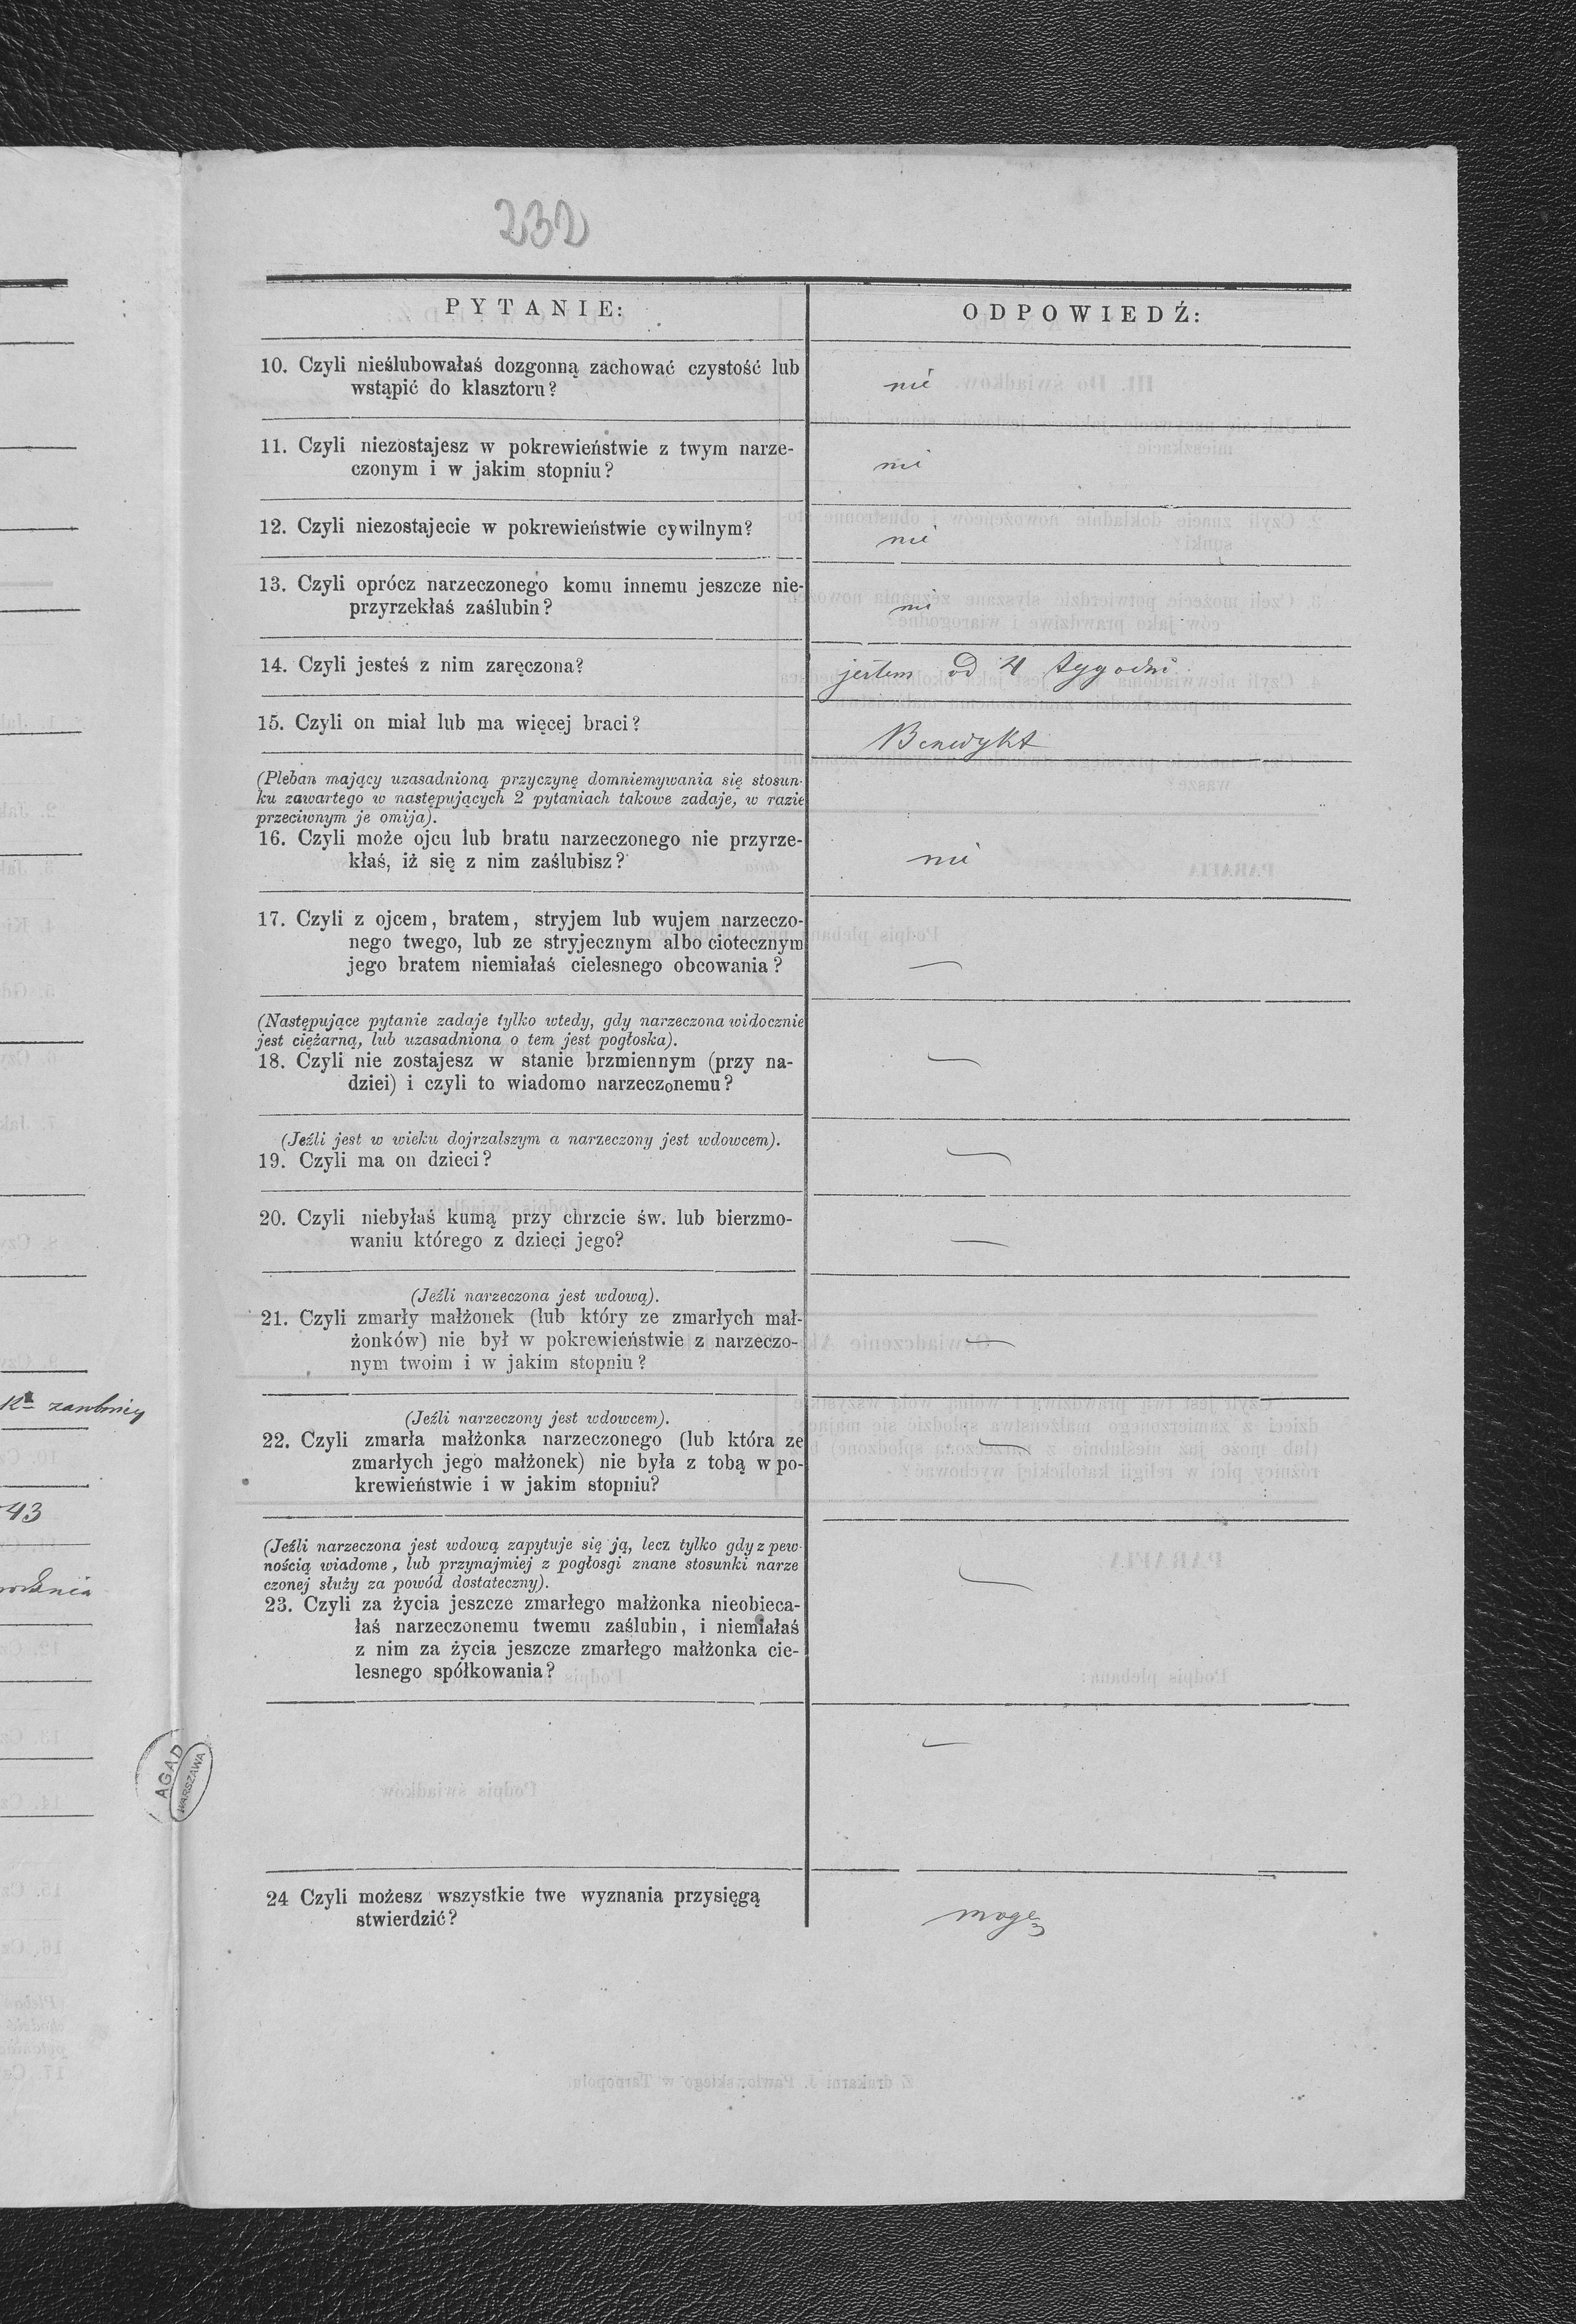 232
PYTANIE:
ODPOWIEDŹ:
10. Czyli nieślubowałaś dozgonną zachować czystość lub
wstąpić do klasztoru?
nie
11. Czyli niezostajesz w pokrewieństwie z twym narze-
czonym i w jakim stopniu?
nie
12. Czyli niezostajecie w pokrewieństwie cywilnym?
nie
13. Czyli oprócz narzeczonego komu innemu jeszcze nie-
przyrzekłaś zaślubin?
nie
14. Czyli jesteś z nim zaręczona?
jestem od 4 tygodni
15. Czyli on miał lub ma więcej braci?
Benedykt
(Pleban mający uzasadnioną przyczynę domniemywania się stosun-
ku zawartego w następujących 2 pytaniach takowe zadaje, w razie
przeciwnym je omija).
16. Czyli może ojcu lub bratu narzeczonego nie przyrze-
kłaś, iż się z nim zaślubisz?
nie
17. Czyli z ojcem, bratem, stryjem lub wujem narzeczo-
nego twego, lub ze stryjecznym albo ciotecznym
jego bratem niemiałaś cielesnego obcowania?
—
(Następujące pytanie zadaje tylko wtedy, gdy narzeczona widocznie
jest ciężarną, lub uzasadniona o tem jest pogłoska).
18. Czyli nie zostajesz w stanie brzmiennym (przy na-
dziei) i czyli to wiadomo narzeczonemu?
—
(Jeźli jest w wieku dojrzalszym a narzeczony jest wdowcem).
19. Czyli ma on dzieci?
—
20. Czyli niebyłaś kumą przy chrzcie św. lub bierzmo-
waniu którego z dzieci jego?
—
(Jeźli narzeczona jest wdową).
21. Czyli zmarły małżonek (lub który ze zmarłych mał-
żonków) nie był w pokrewieństwie z narzeczo-
nym twoim i w jakim stopniu?
—
(Jeźli narzeczony jest wdowcem).
22. Czyli zmarła małżonka narzeczonego (lub która ze
zmarłych jego małżonek) nie była z tobą w po-
krewieństwie i w jakim stopniu?
—
(Jeźli narzeczona jest wdową zapytuje się ją, lecz tylko gdy z pew-
nością wiadome, lub przynajmiej z pogłosgi znane stosunki narze
czonej służy za powód dostateczny).
23. Czyli za życia jeszcze zmarłego małżonka nieobieca-
łaś narzeczonemu twemu zaślubin, i niemiałaś
z nim za życia jeszcze zmarłego małżonka cie-
lesnego spółkowania?
—
—
24 Czyli możesz wszystkie twe wyznania przysięgą
stwierdzić?
mogę
43
AGAD
WARSZAWA